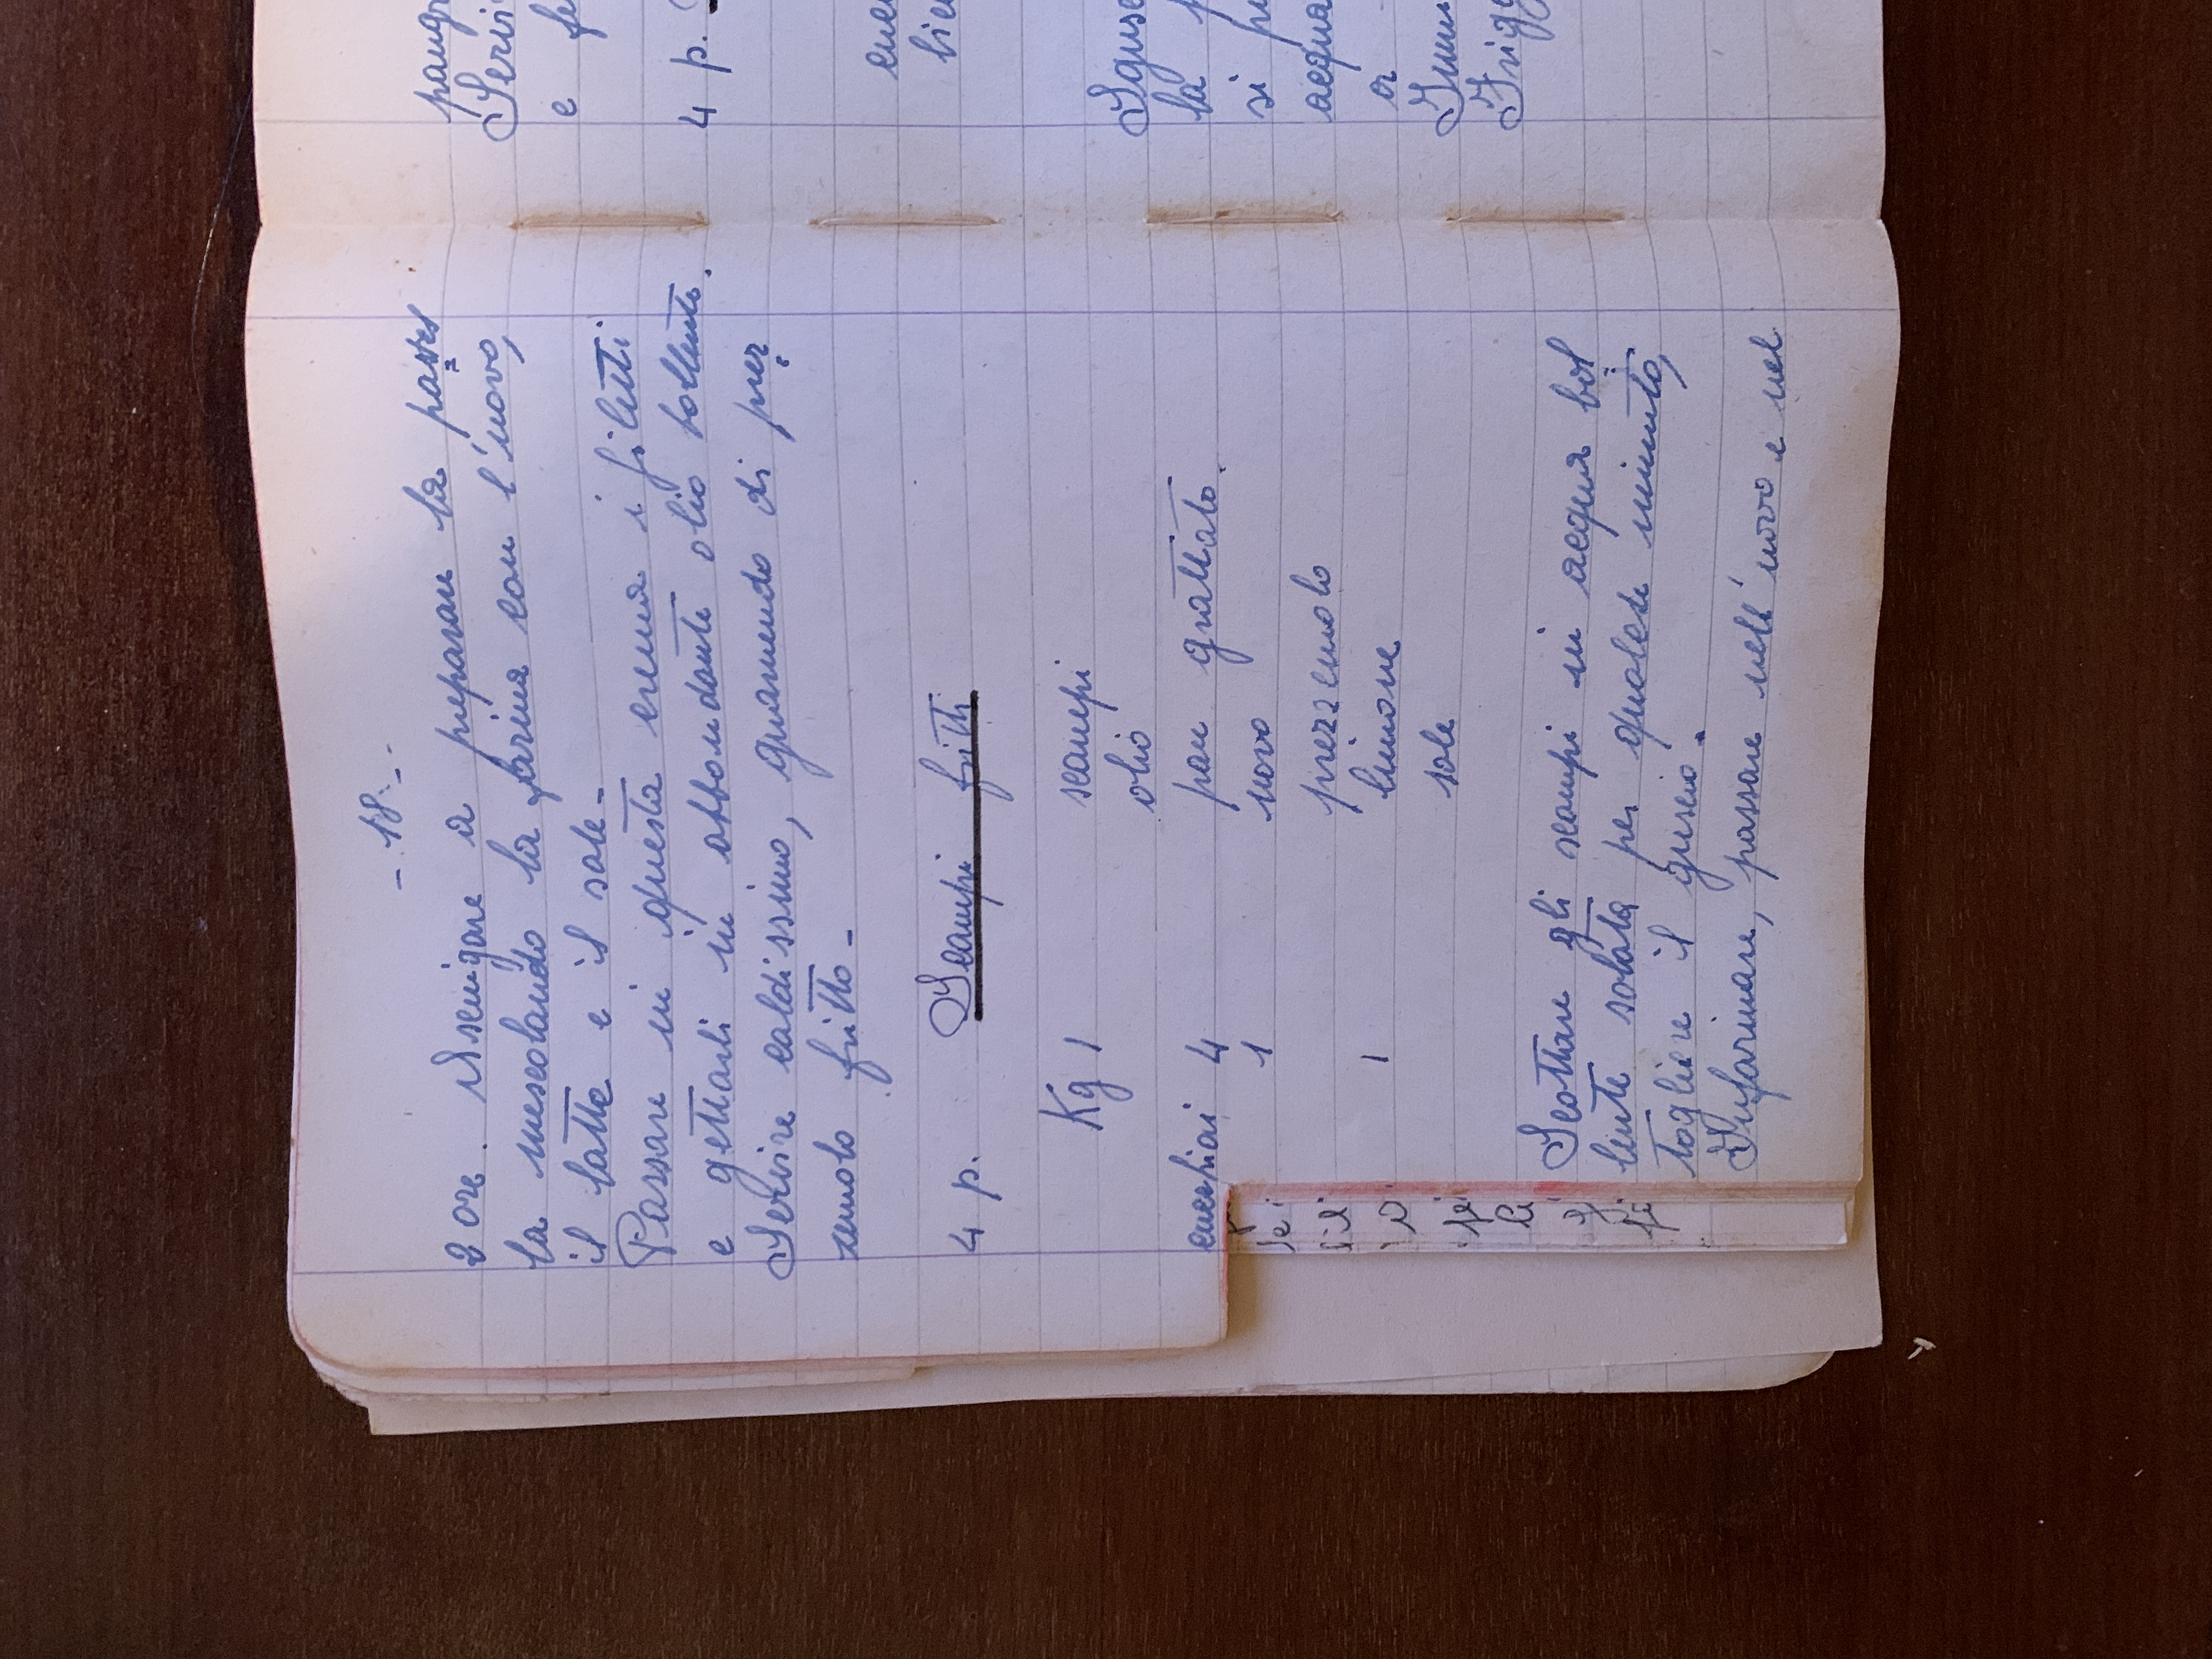 - 18 - -
2 ore. Assenigare a preparare la pastel
la mescolando la farina con l'uovo,
il latte e il sale -
Passare in questa crema i filetti
e gettarli in abbondante olio bollente.
Servire caldissimo, guarnendo di prez
zemolo fritto -
4 p. Scampi fritti
Kg 1 scampi
olio
cucchiai 4 pan grattato.
1 uovo
prezzemolo
1 limone
sale
Scottare gli scampi in acqua bol
lente salata per qualche minuto,
togliere il guscio.
Infarinare, passare nell'uovo e nel
pangr
Servi
e fe
4 p.
cuc
bic
Sgusc
la p
si p
acqua
a
Imm
Frigg